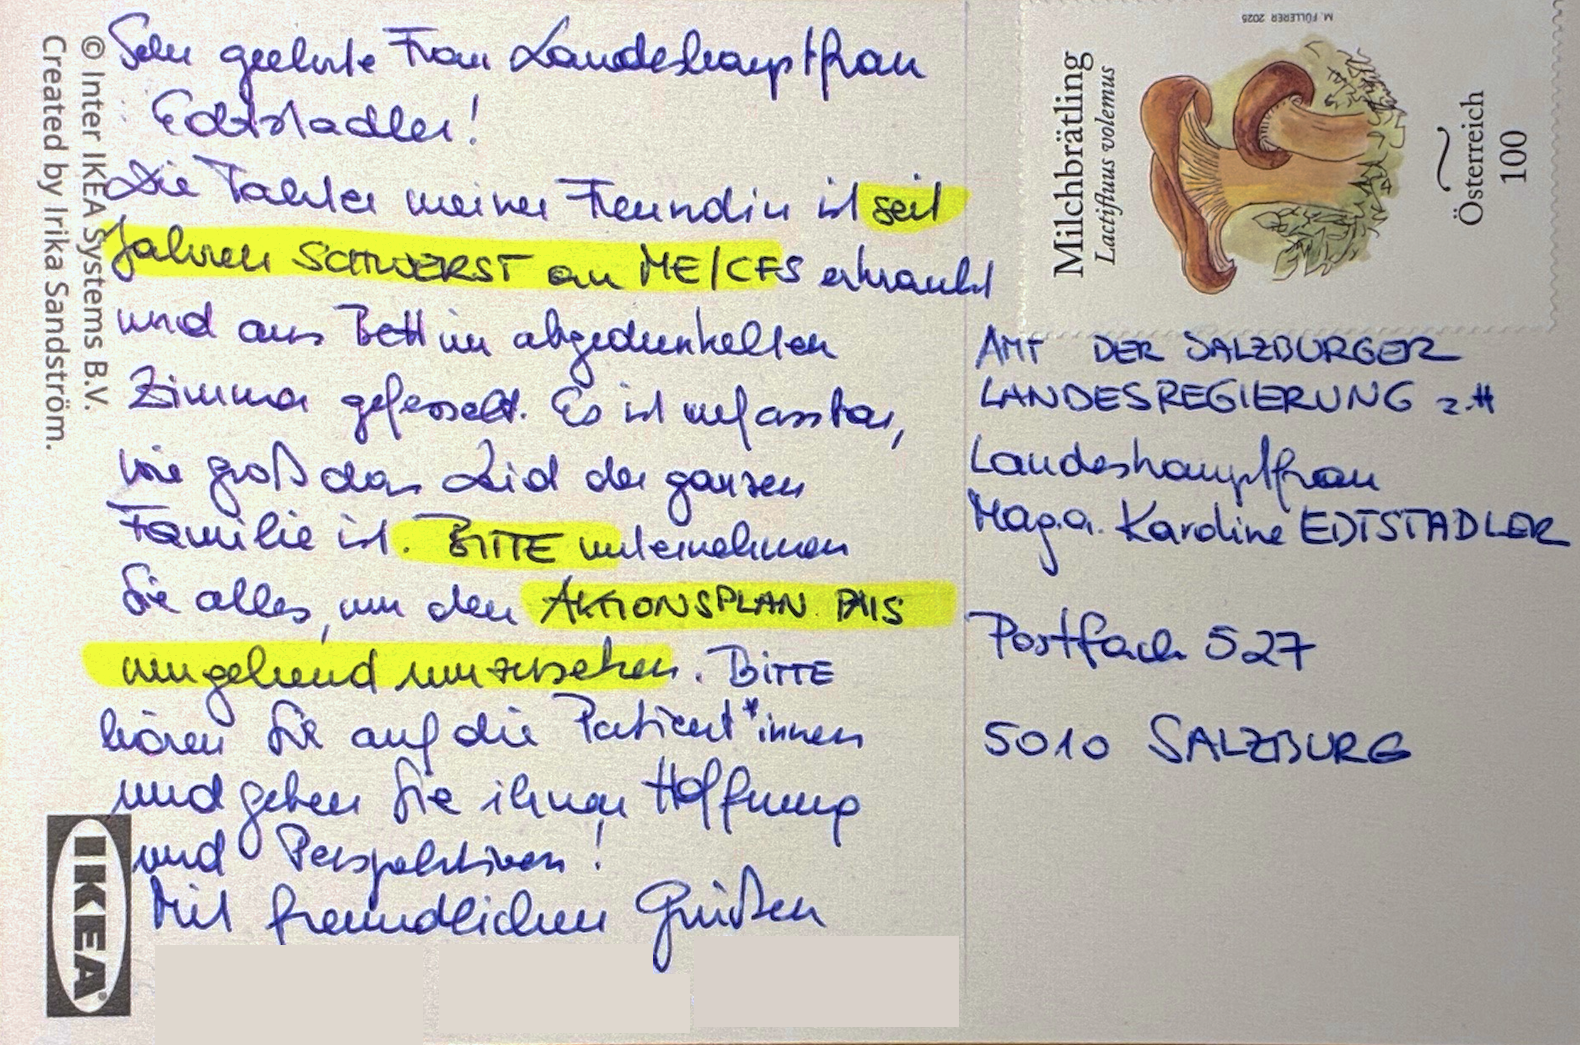 Sehr geehrte Frau Landeshauptfrau
Edtstadler!
Die Tochter meiner Freundin ist seit
Jahren SCHWERST an ME/CFS erkrankt
und ans Bett im abgedunkelten
Zimmer gefesselt. Es ist unfassbar,
wie groß das Leid der ganzen
Familie ist. BITTE unternehmen
Sie alles, um den AKTIONSPLAN PAIS
umgehend umzusetzen. BITTE
hören Sie auf die Patient*innen
und geben Sie ihnen Hoffnung
und Perspektiven!
Mit freundlichen Grüßen
© Inter IKEA Systems B.V.
Created by Irika Sandström.
IKEA
M. FÜLLERER 2025
Milchbrätling
Lactifluus volemus
Österreich
100
AMT DER SALZBURGER
LANDESREGIERUNG z.H
Landeshauptfrau
Mag.a. Karoline EDTSTADLER
Postfach 527
5010 SALZBURG